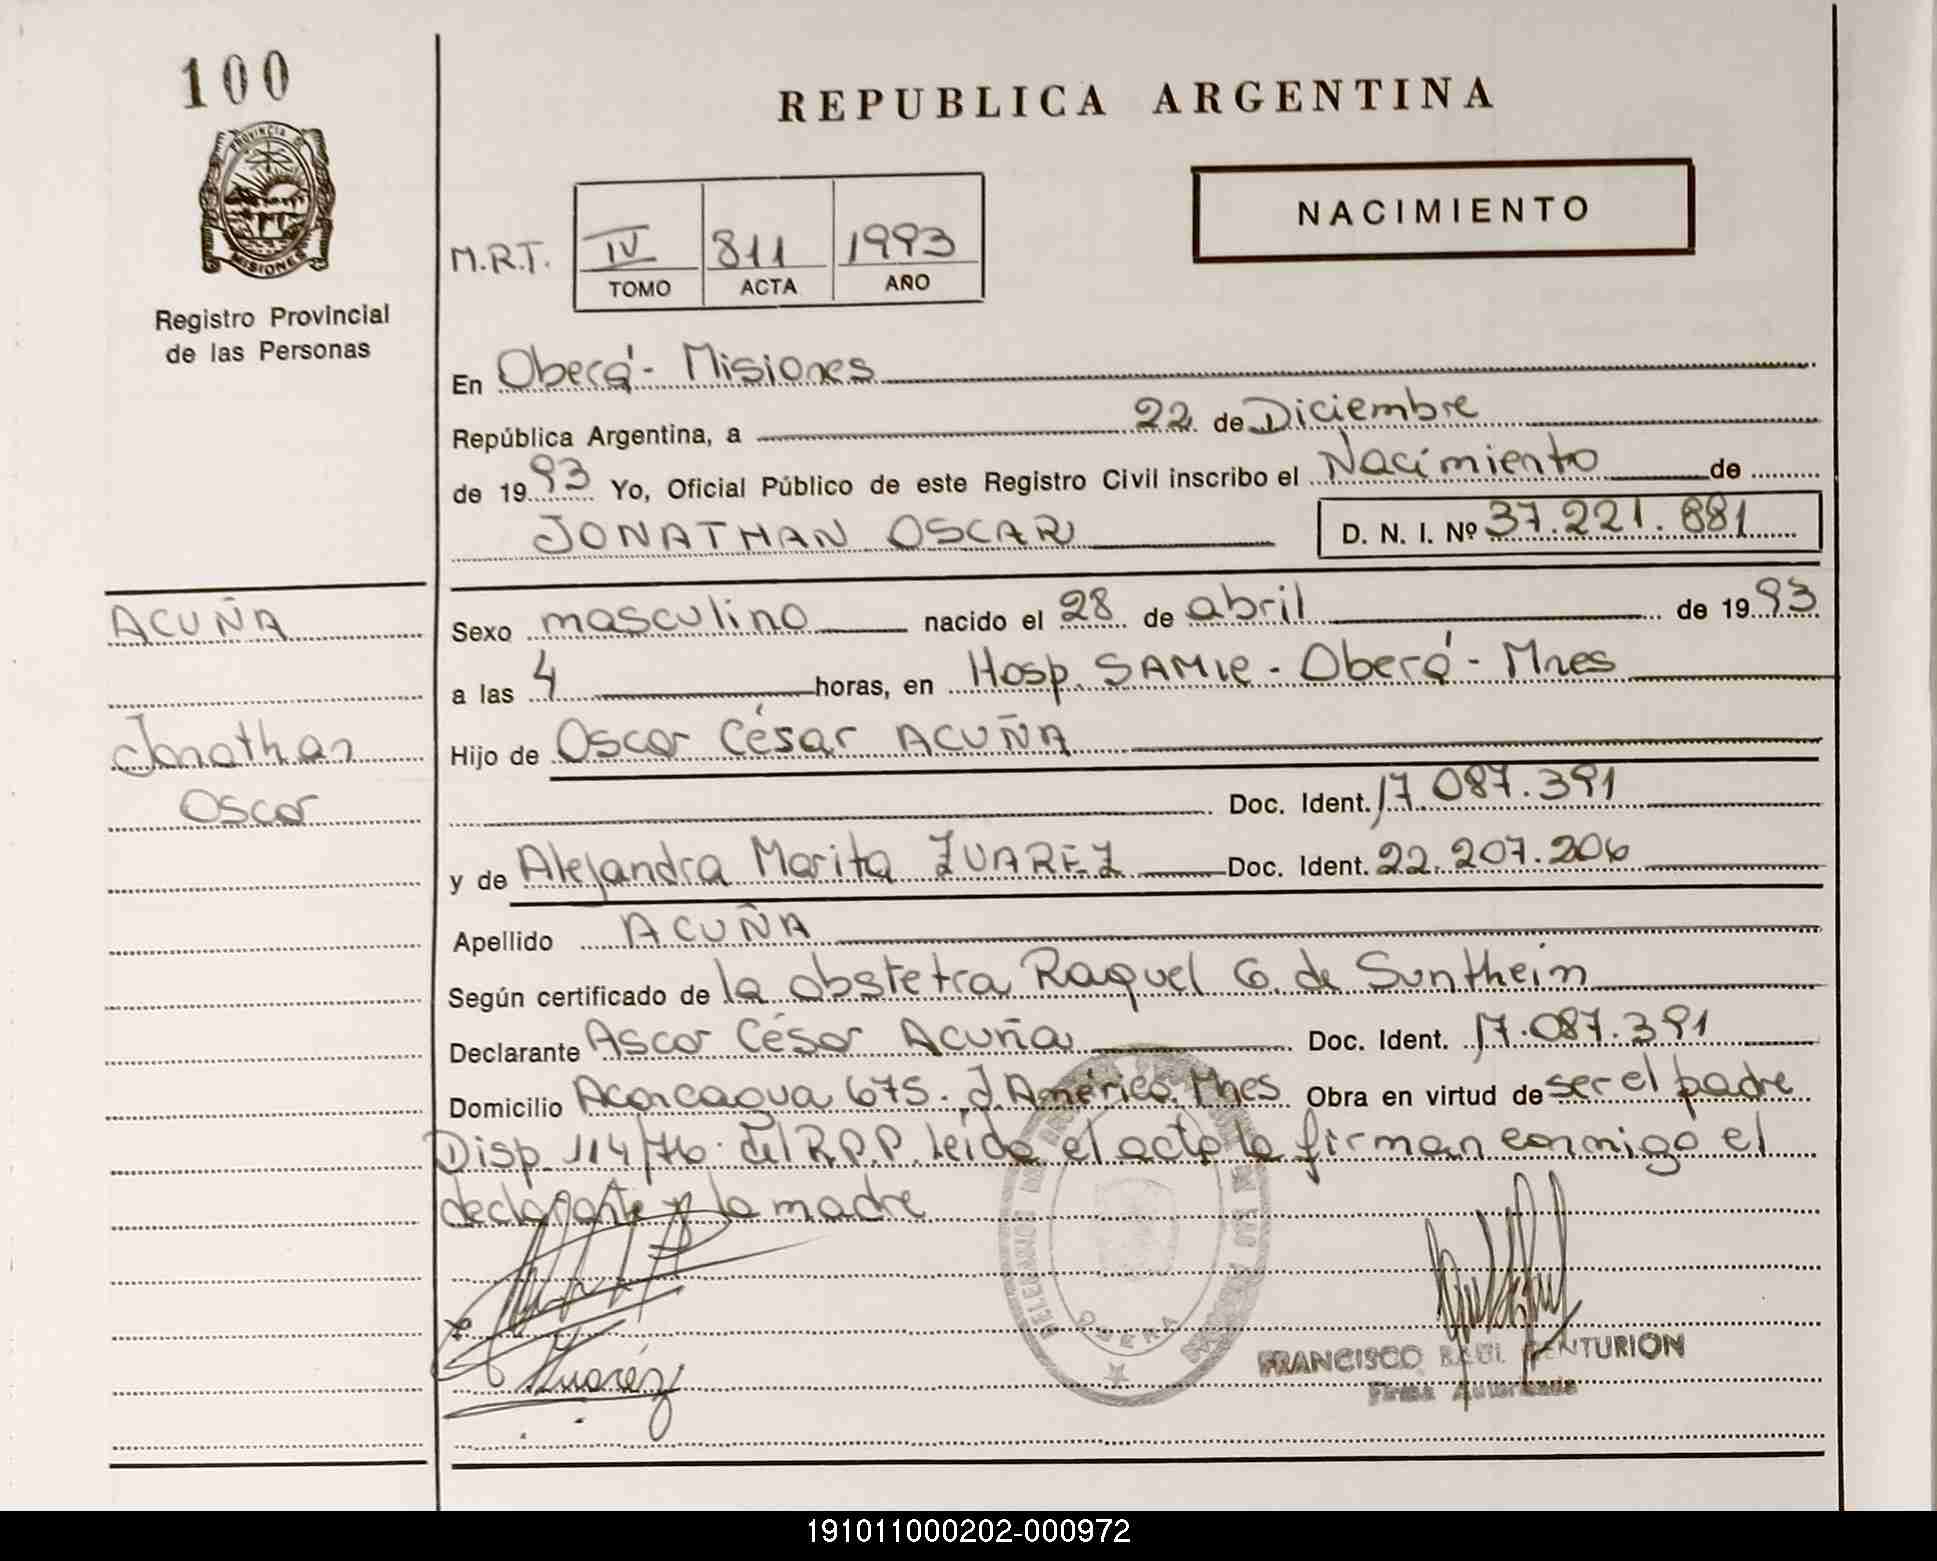 100
PROVINCIA DE
MISIONES
Registro Provincial
de las Personas
REPUBLICA ARGENTINA
NACIMIENTO
M.R.T. IV 811 1993
TOMO ACTA AÑO
En Oberá - Misiones
República Argentina, a 22 de Diciembre
de 1993 Yo, Oficial Público de este Registro Civil inscribo el Nacimiento de
JONATHAN OSCAR D. N. I. Nº 37.221.881
ACUÑA
Jonathan
Oscar
Sexo masculino nacido el 28 de abril de 1993
a las 4 horas, en Hosp. SAMIC - Oberá - Mnes
Hijo de Oscar César ACUÑA
Doc. Ident. 17.087.391
y de Alejandra Marita ZUAREZ Doc. Ident. 22.207.206
Apellido ACUÑA
Según certificado de la obstetra Raquel G. de Sunthein
Declarante Ascar César Acuña Doc. Ident. 17.087.391
Domicilio Aconcagua 675. J. América. Mnes Obra en virtud de ser el padre
Disp. 114/76. del R.P.P. Leída el acta la firman conmigo el
declarante y la madre
Zuarez
OBERA
FRANCISCO RAUL CENTURION
Firma Autorizada
191011000202-000972